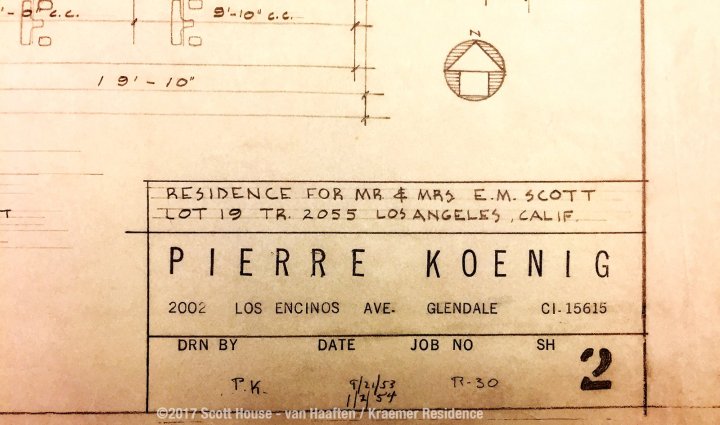 9'-10" C.C.
N
19'-10"
RESIDENCE FOR MR & MRS E.M. SCOTT
LOT 19 TR. 2055 LOS ANGELES, CALIF.
PIERRE KOENIG
2002 LOS ENCINOS AVE. GLENDALE CI-15615
DRN BY DATE JOB NO SH 2
P.K. 9/21/53 R-30
1/2/54
©2017 Scott House - van Haaften / Kraemer Residence